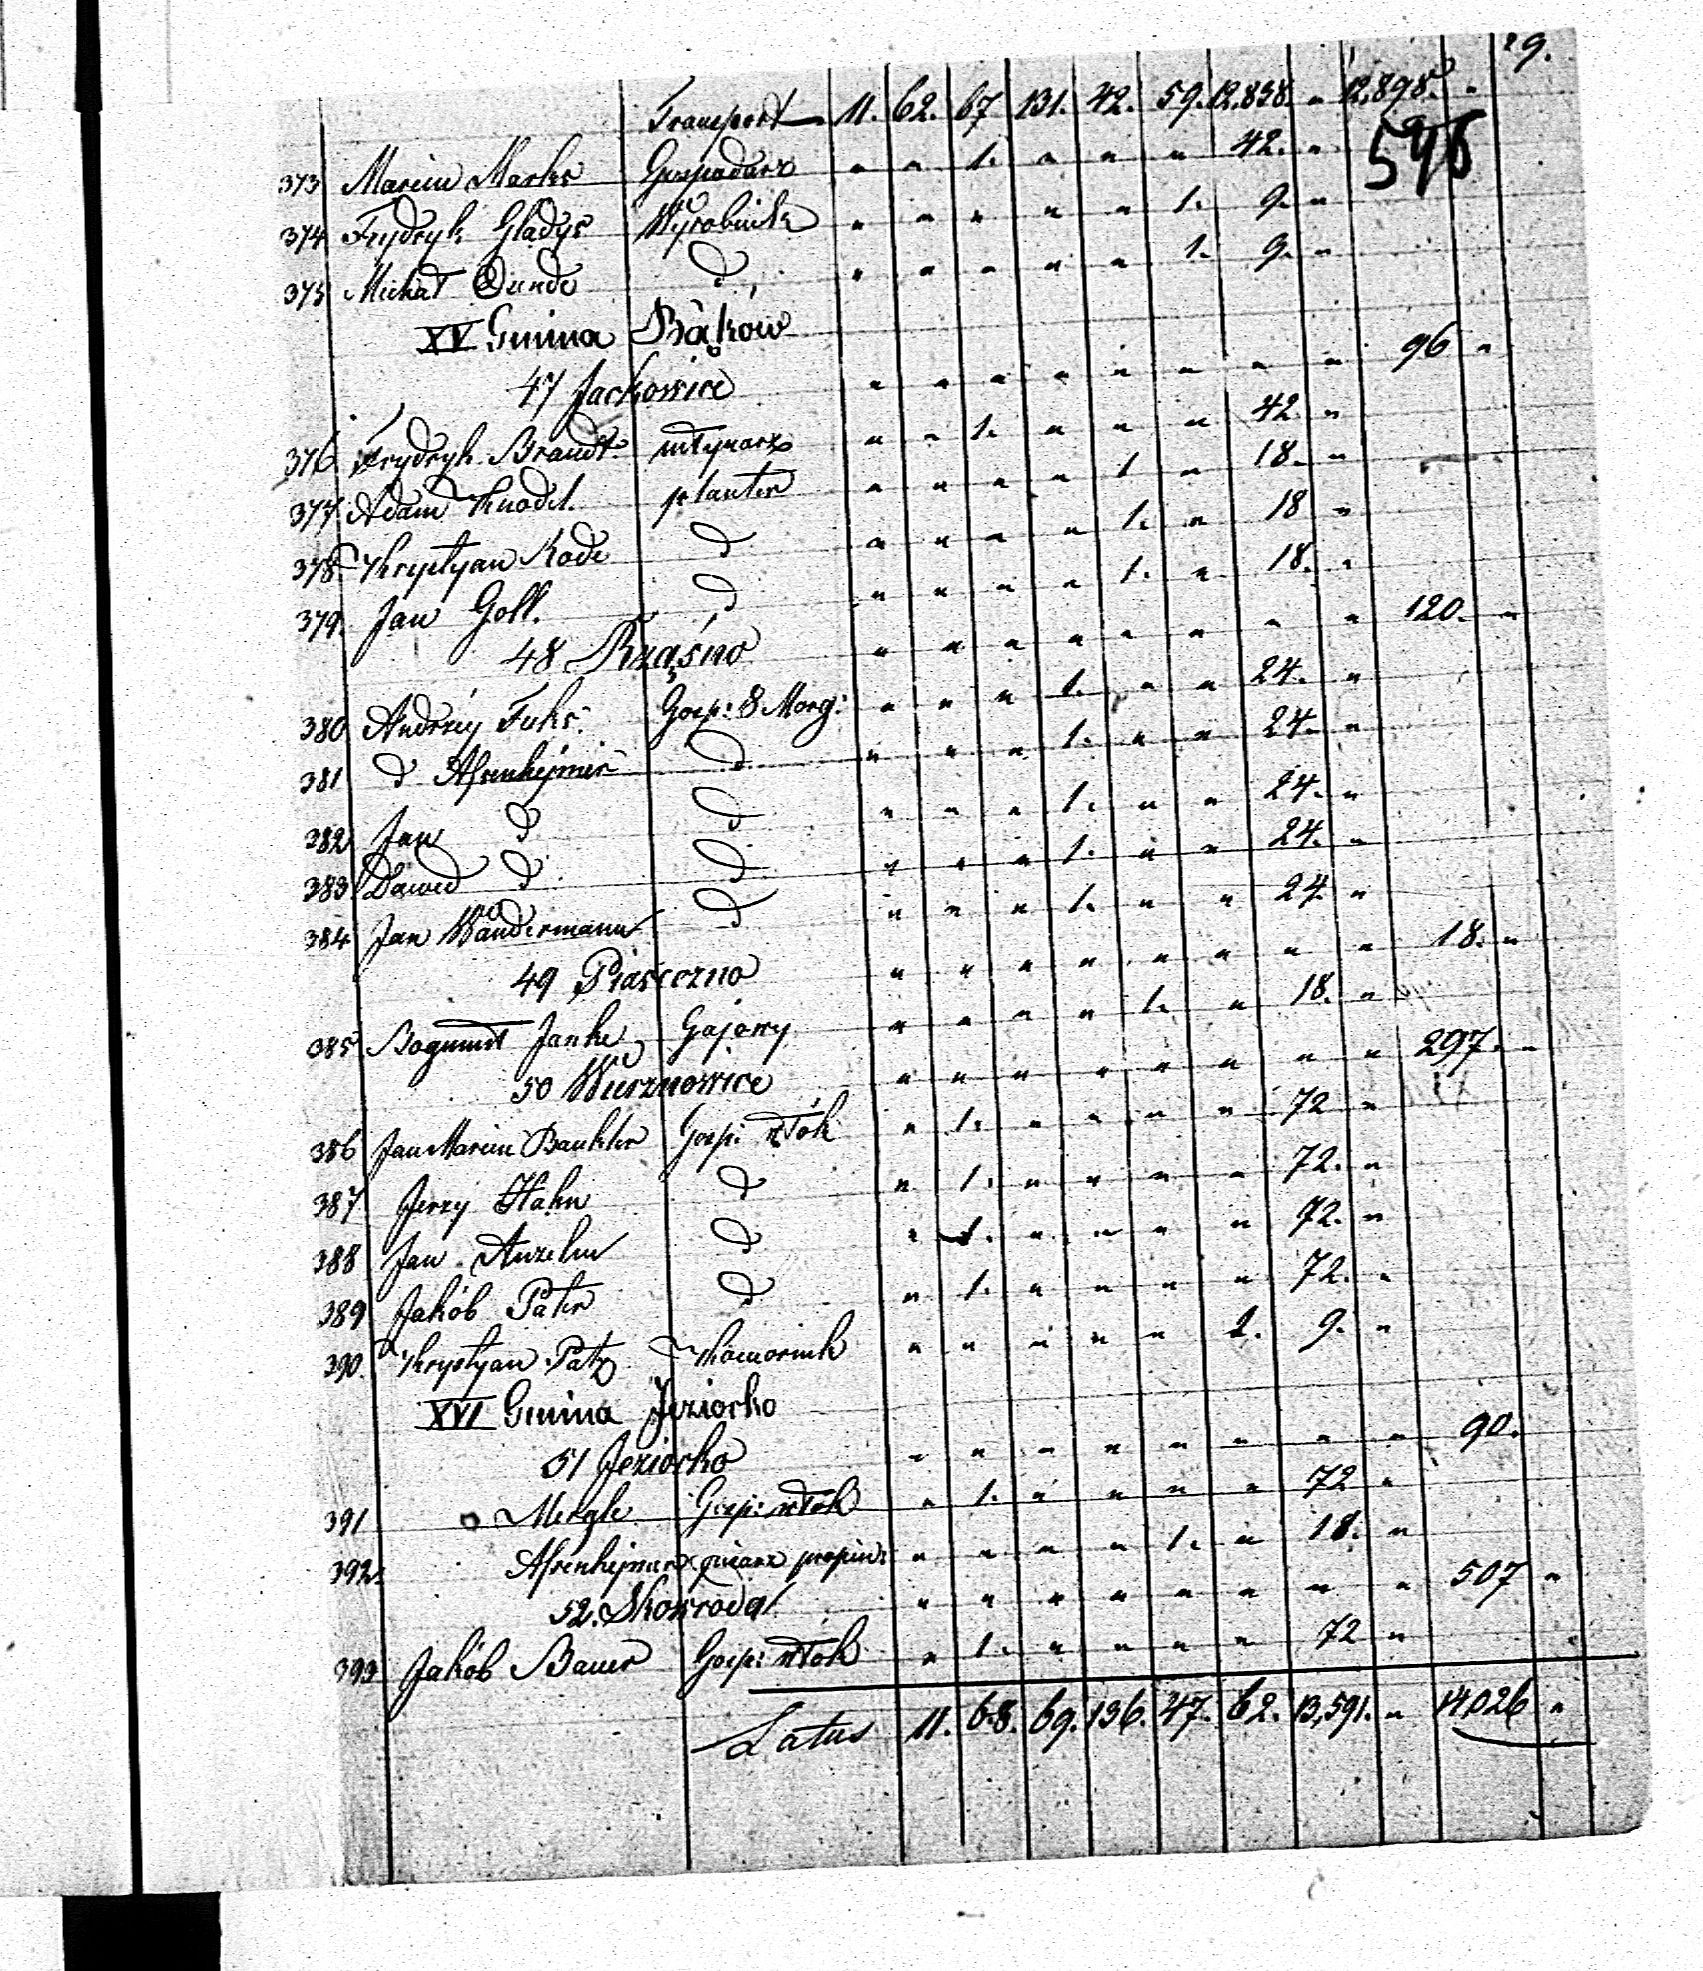 29.
Transport 11. 62. 67 131. 42. 59. 12,838. " 12,898. "
596
373 Marcin Marks Gospodarz " " 1. " " " 42. "
374 Frydryk Gladys Wyrobnik " " " " " 1. 9. "
375 Michał Dunde d " " " " " 1. 9. "
XV Gmina Bąków
47 Jackowice " " " " " " " " 96 "
376 Frydryk Brandt młynarz " " 1. " " " 42 "
377. Adam Knodel. planter " " " " 1 " 18. "
378. Krystyan Rode d " " " " 1. " 18 "
379. Jan Goll. d " " " " 1. " 18. "
48 Rząśno " " " " " " " " 120. "
380 Andrzéy Fuks. Gosp: 8 Morg: " " " 1. " " 24. "
381 d Assenhejmer d " " " 1. " " 24. "
382 Jan d d " " " 1. " " 24. "
383. Dawid d d " " " 1. " " 24. "
384 Jan Wandermann d " " " 1. " " 24. "
49 Piaseczno " " " " " " " " 18. "
385 Bogumił Janke Gajowy " " " " 1. " 18. "
50 Wiisznowice " " " " " " " " 297. "
386 Jan Marcin Gosp: włók " 1. " " " " 72 "
387 Jerzy Hahn d " 1. " " " " 72. "
388 Jan Anzelm d " 1. " " " " 72. "
389 Jakób Pater d " 1. " " " " 72. "
390. Krystyan Patz Komornik " " " " " 1. 9. "
XVI Gmina Jeziorko
51 Jeziorko " " " " " " " " 90.
391 Mergle Gosp: włók " 1. " " " " 72 "
392. Assenhejmer propin: " " " " 1. " 18. "
52. Skowroda " " " " " " " " 507 "
393 Jakób Bauer Gosp: włók " 1. " " " " 72 "
Latus 11. 68. 69. 136. 47. 62. 13,591. " 14,026 "